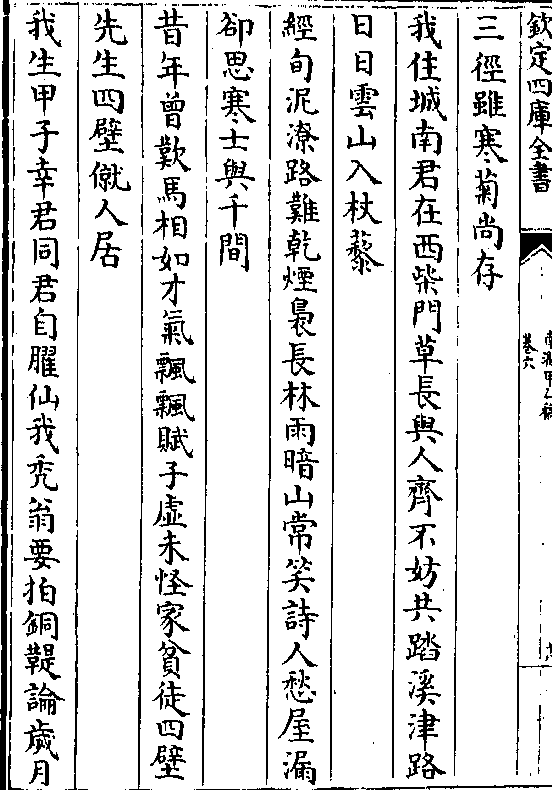 欽定四庫全書
卷六
三徑雖寒菊尚存
我住城南君在西柴門草長與人齊不妨共踏溪津路
日日雲山入杖藜
經旬泥潦路難乾煙裊長林雨暗山常笑詩人愁屋漏
卻思寒士與千間
昔年曾歎馬相如才氣飄飄賦子虛未怪家貧徒四壁
先生四壁僦人居
我生甲子幸君同君自臞仙我禿翁要拍銅鞮論歲月